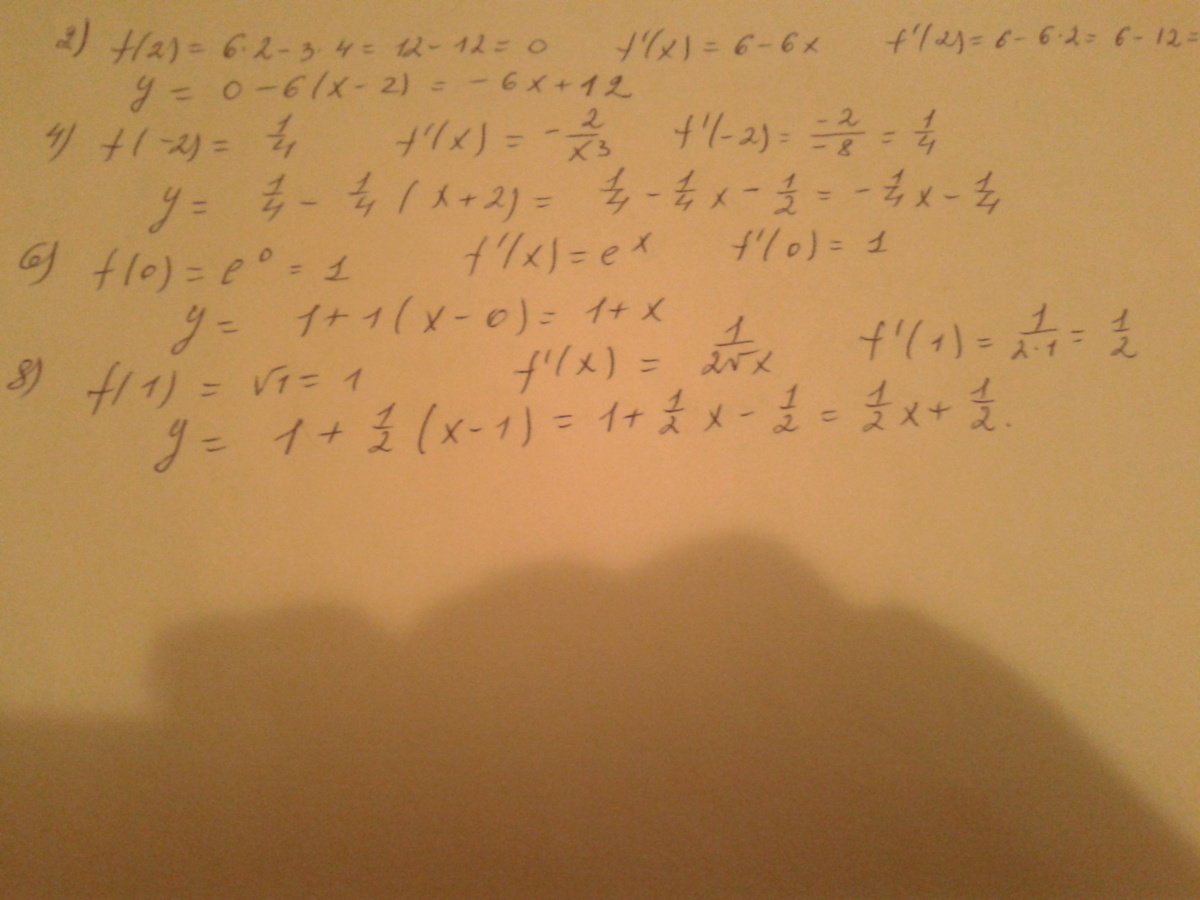 2) f(2) = 6·2 - 3·4 = 12 - 12 = 0 f'(x) = 6 - 6x f'(2) = 6 - 6·2 = 6 - 12 =
y = 0 - 6(x - 2) = -6x + 12
4) f(-2) = 1/4 f'(x) = -2/x³ f'(-2) = -2/-8 = 1/4
y = 1/4 - 1/4 (x + 2) = 1/4 - 1/4 x - 1/2 = -1/4 x - 1/4
6) f(0) = e⁰ = 1 f'(x) = eˣ f'(0) = 1
y = 1 + 1(x - 0) = 1 + x
8) f(1) = √1 = 1 f'(x) = 1/2√x f'(1) = 1/2·1 = 1/2
y = 1 + 1/2 (x - 1) = 1 + 1/2 x - 1/2 = 1/2 x + 1/2.